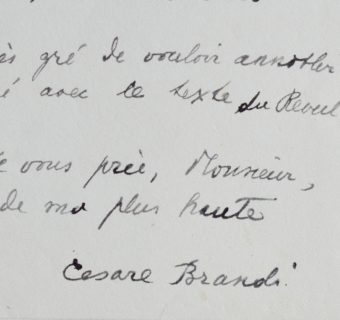 ès gré de vouloir annoter
é avec le texte du Recueil
e vous prie, Monsieur,
de ma plus haute
Cesare Brandi